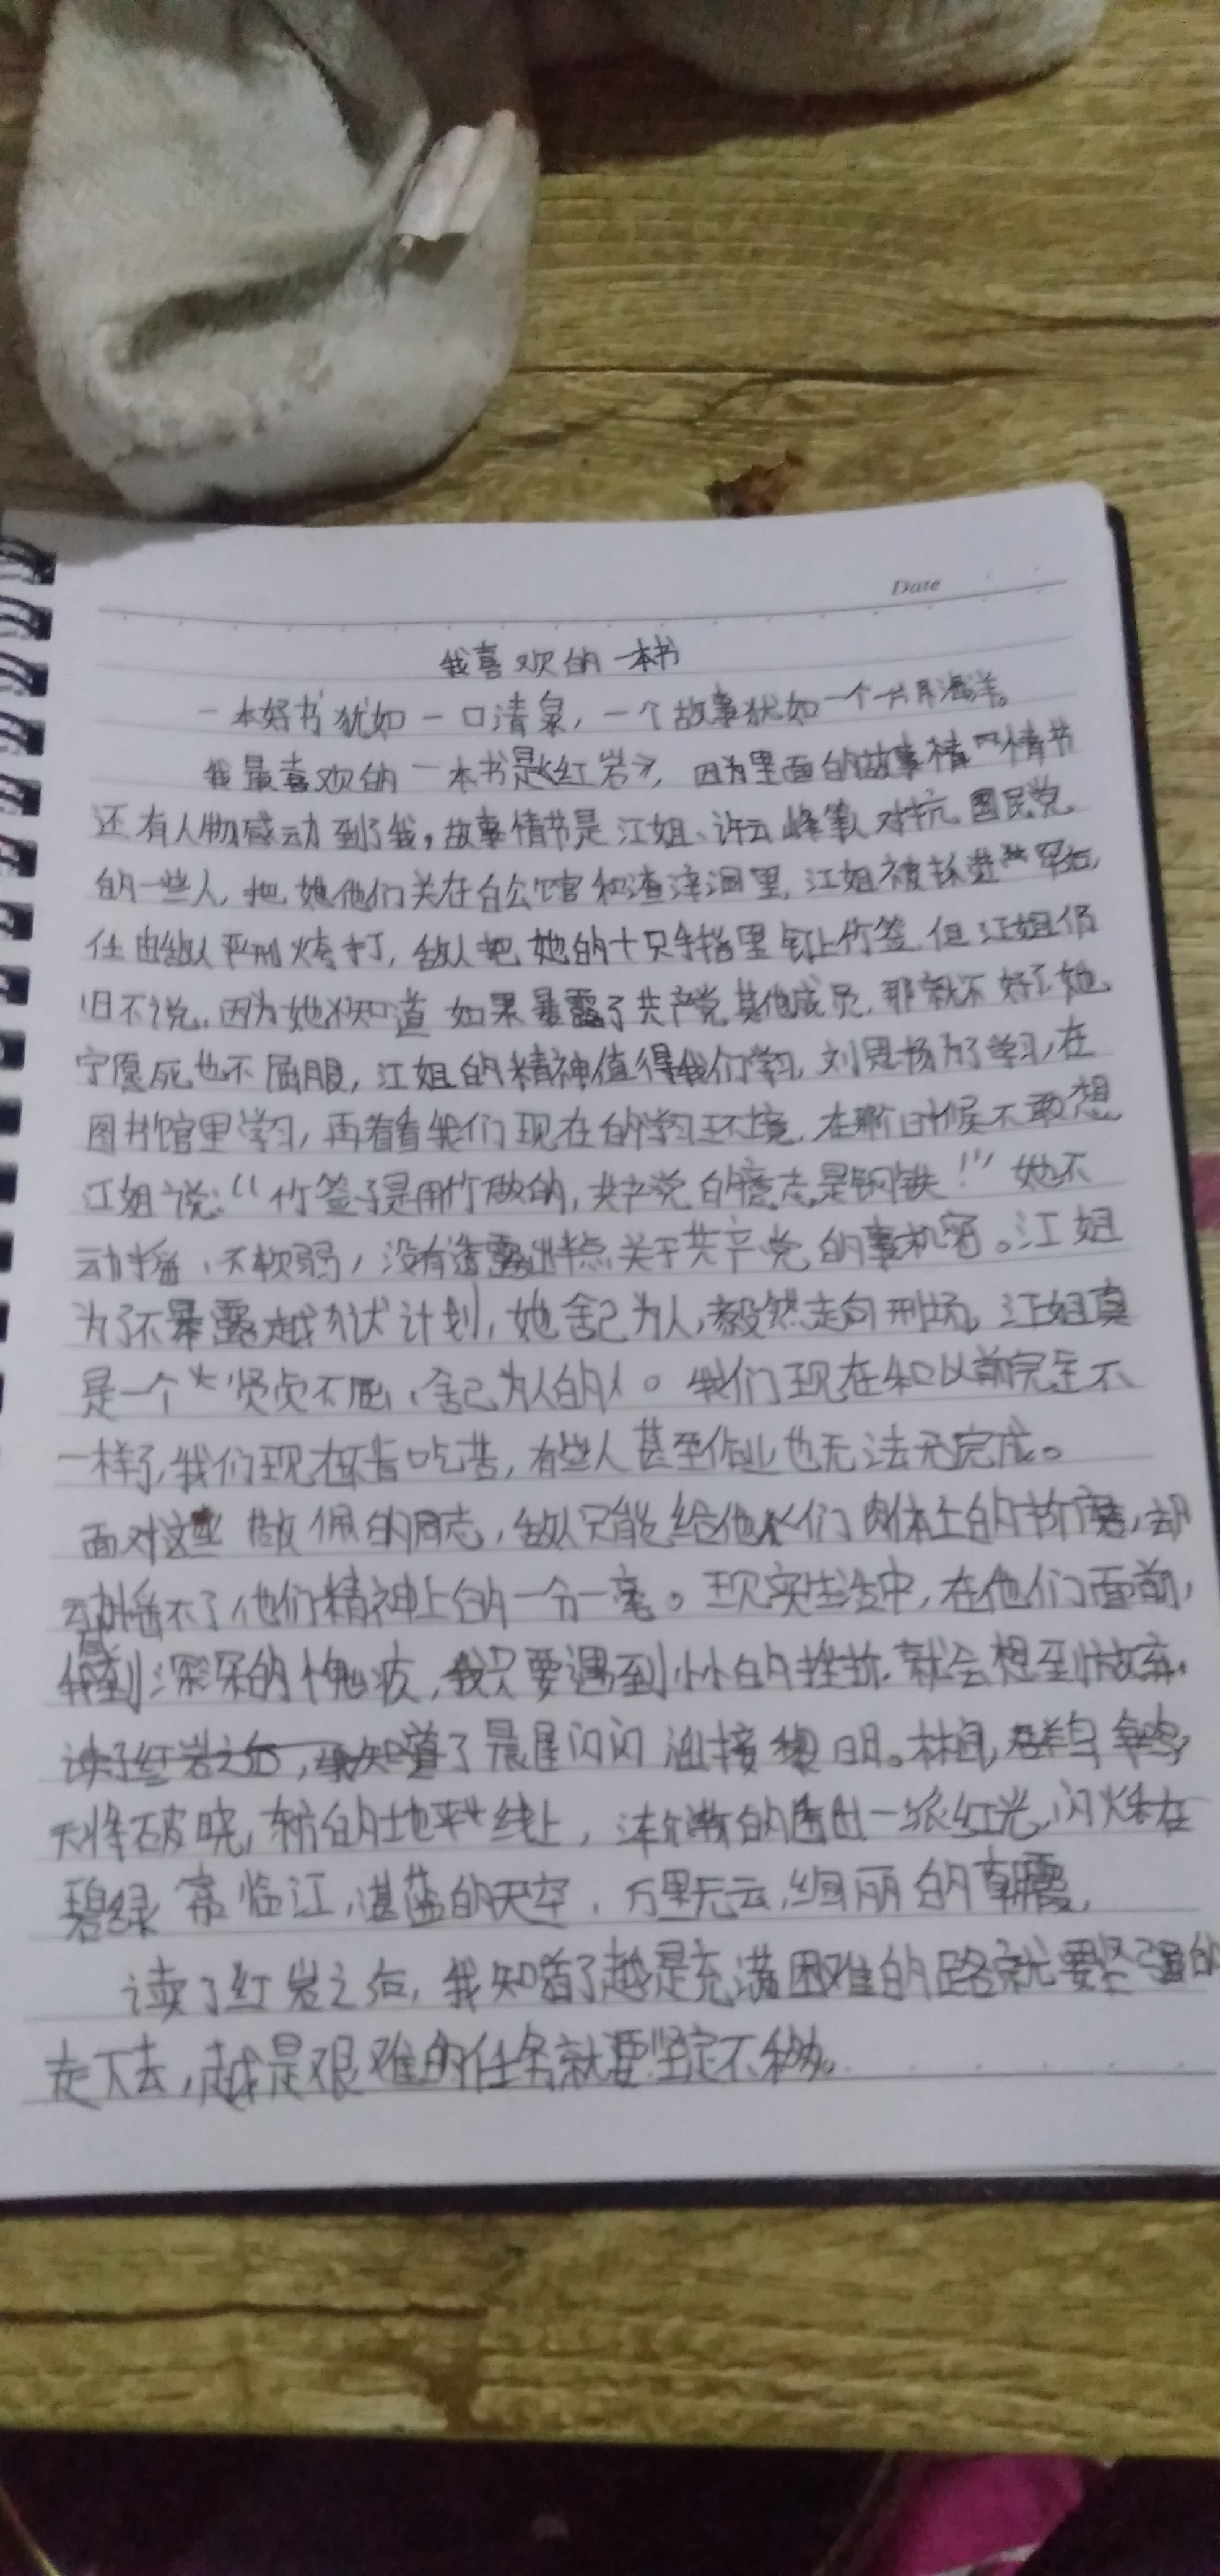 Date
我喜欢的一本书
一本好书犹如一口清泉，一个故事犹如一个片海洋。
我最喜欢的一本书是《红岩》，因为里面的故事情节
还有人物感动到了我，故事情节是江姐、许云峰等人对抗国民党
的一些人，把她他们关在白公馆和渣滓洞里，江姐被抓进牢后，
任由敌人严刑烤打，敌人把她的十只手指里钉上竹签，但江姐仍
旧不说，因为她知道如果暴露了共产党其他成员，那就不好了她
宁愿死也不屈服，江姐的精神值得我们学习，刘思杨为了学习，在
图书馆里学习，再看看我们现在的学习环境，在那时候不敢想
江姐说：“竹签子是用竹做的，共产党的意志是钢铁！”她不
动摇，不软弱，没有透露出半点关于共产党的事机密。江姐
为了不暴露越狱计划，她舍己为人，毅然走向刑场，江姐真
是一个贤贞不屈、舍己为人的人。我们现在和以前完全不
一样了，我们现在吃苦，有些人甚至作业也无法完成。
面对这些敬佩的同志，敌人只能给他们肉体上的折磨，却
动摇不了他们精神上的一分一毫。现实生活中，在他们面前，
感到深深的愧疚，我只要遇到小小的挫折，就会想到放弃，
读了红岩之后，我知道了晨星闪闪迎接黎明。林间，群鸟争鸣，
天将破晓，东方的地平线上，渐渐的透出一派红光，闪烁在
碧绿嘉临江，湛蓝的天空，万里无云，绚丽的朝霞，
读了红岩之后，我知道了越是充满困难的路就要坚强的
走下去，越是艰难的任务就要坚定不移。